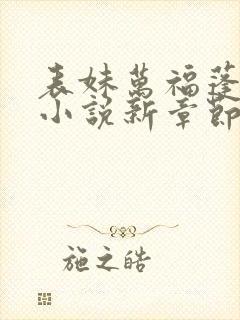 表妹萬福蓬
小說新章節
施之皓